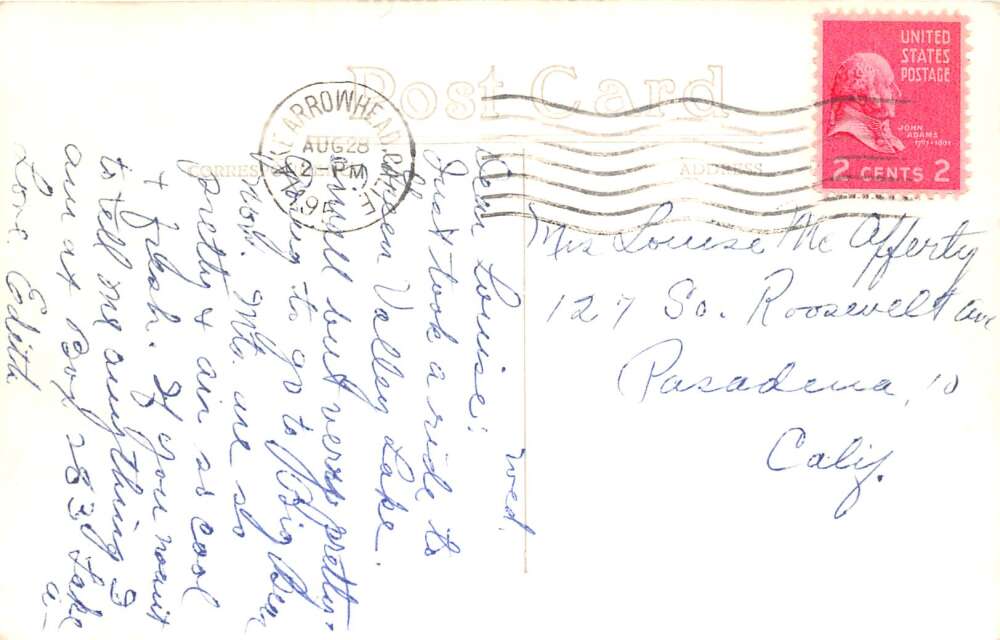 Post Card
CORRESPONDENCE
ADDRESS
UNITED
STATES
POSTAGE
JOHN
ADAMS
1797-1801
2 CENTS 2
ARROWHEAD
AUG 28
2 PM
CALIF.
Wed.
Dear Louise:
Just took a ride to
Green Valley Lake.
Small but very pretty.
to go to Big Bear
Mts. are so
pretty & air so cool
& fresh. If you want
to tell me anything I
am at Box 283 Lake
a-
Love Edith
Mrs Louise Mc Afferty
127 So. Roosevelt Ave
Pasadena, 10
Calif.